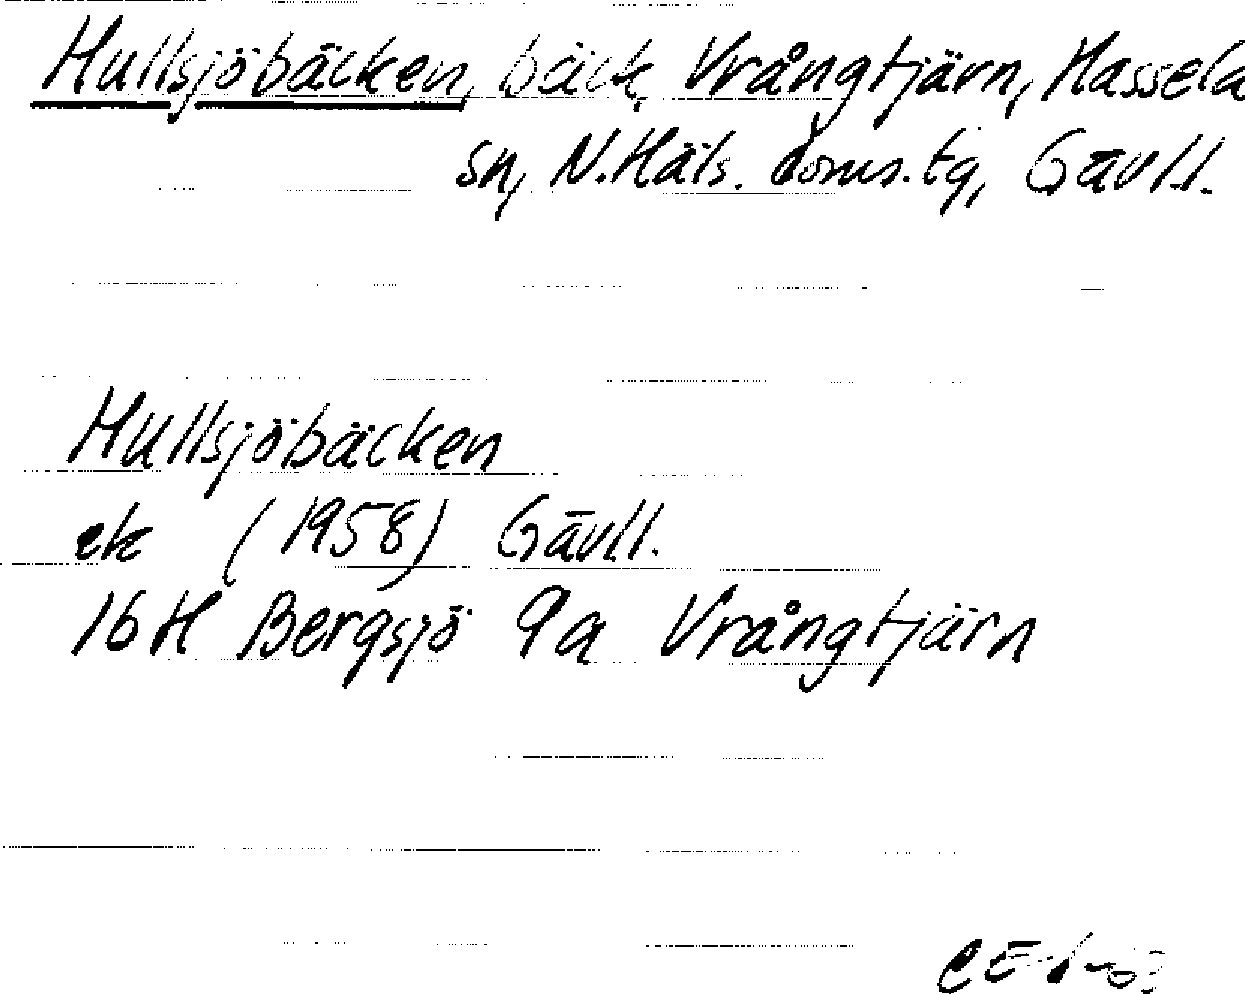 Hullsjöbäcken, bäck, Vrångtjärn, Hassela
sn, N.Häls. doms.tg, Gävll.
Hullsjöbäcken
ek (1958) Gävll.
16H Bergsjö 9a Vrångtjärn